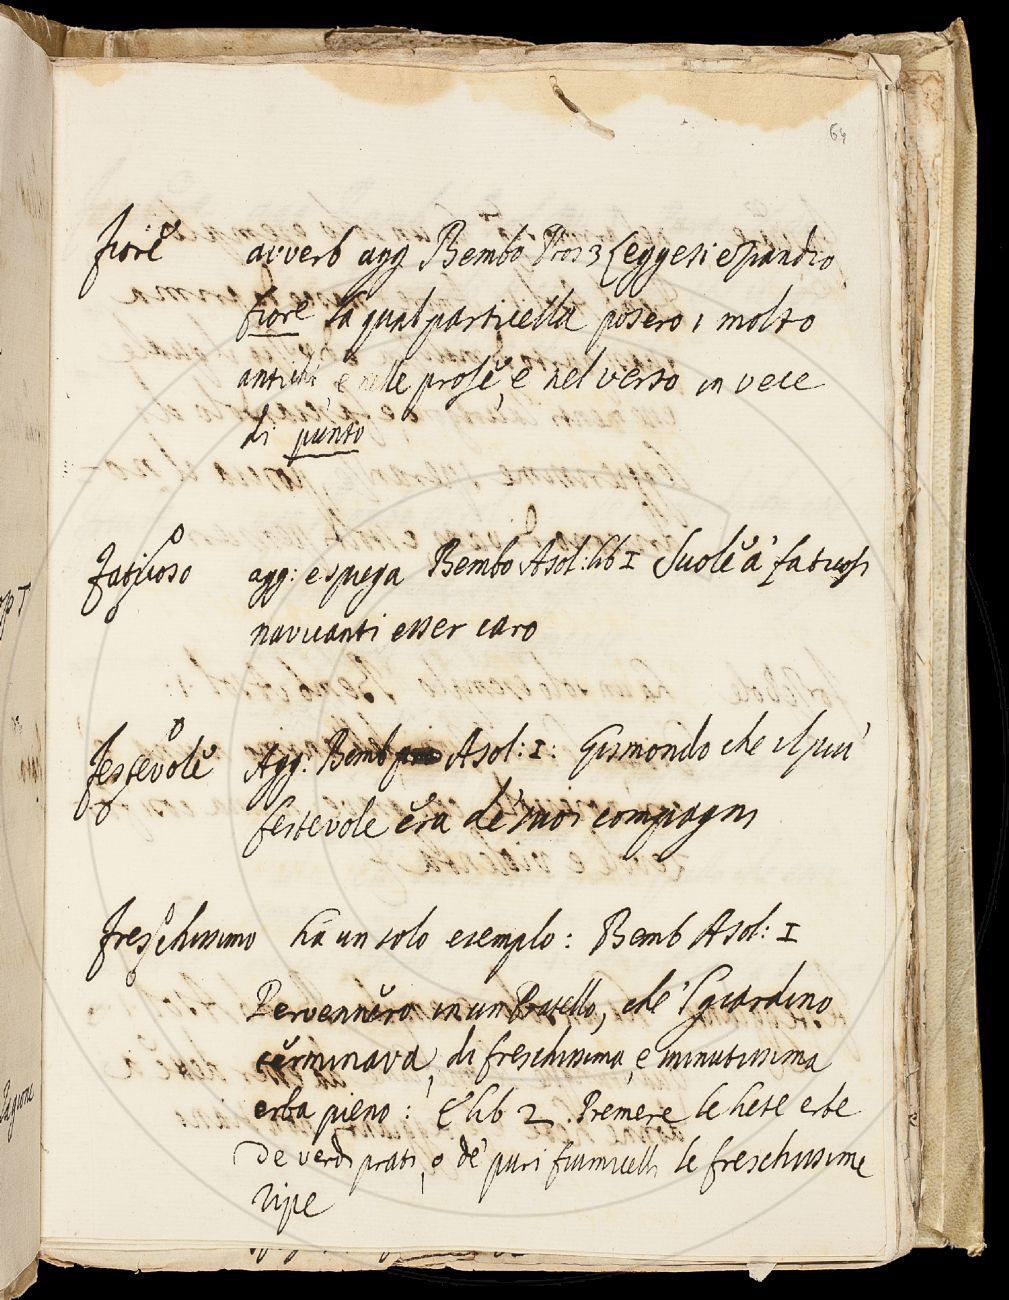 64
fiore avverb agg Bembo Pros 3 Leggesi espandio
fiore la qual particella posero i molto
antichi e nelle prose, e nel verso in vece
di punto
faticoso agg: e spiega Bembo Asol: lib I Suole a' faticosi
navicanti esser caro
festevole Agg: Bemb Asol: I: Gismondo che il più
festevole era de' suoi compagni
freschissimo ha un solo esempio: Bemb Asol: I
Pervennero in un Pratello, che 'l giardino
terminava, di freschissima, e minutissima
erba pieno: E lib 2. Premere le liete erbe
De verdi prati, o de' puri fiumicelli le freschissime
ripe